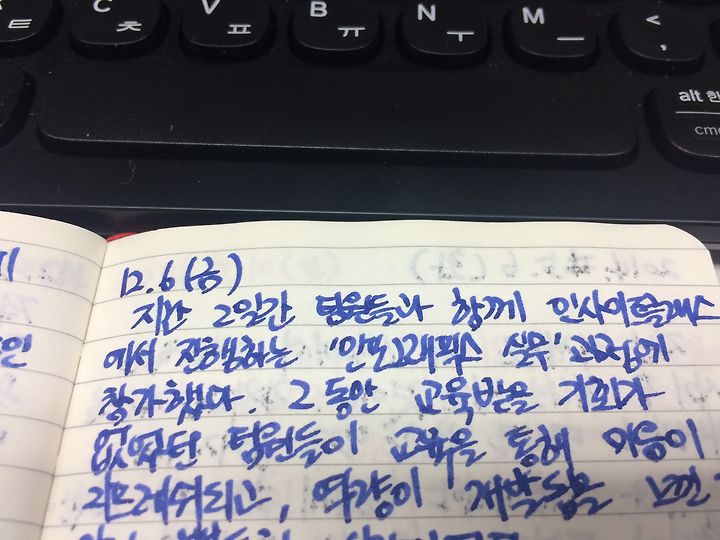 C ㅊ V ㅍ B ㅠ N ㅜ M ㅡ < ,
ㅌ
alt 한
cmd
12.6(금)
지난 2일간 팀원들과 함께 인사이트플러스
에서 진행하는 '인포그래픽스 실무' 과정에
참가했다. 그동안 교육받을 기회가
없었던 팀원들이 교육을 통해 마음이
리프레쉬되고, 역량이 개발됨을 느낀
인